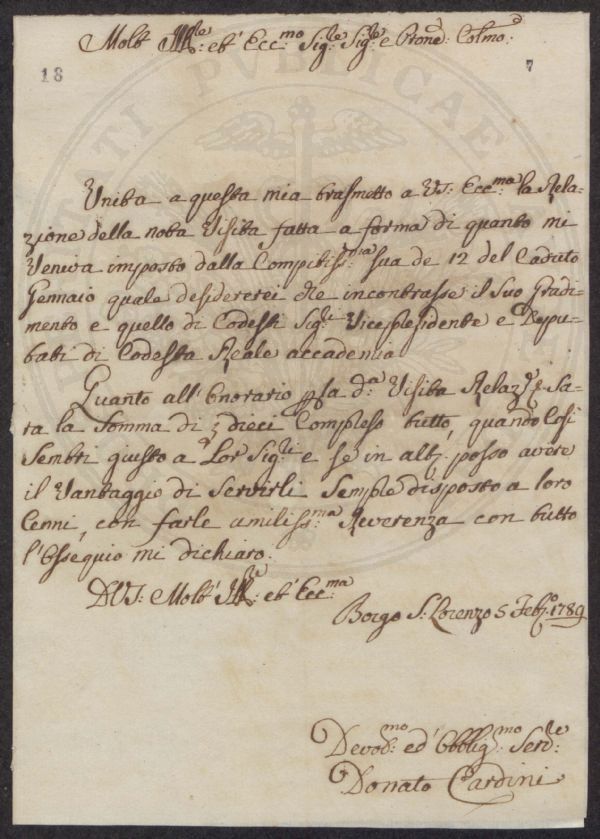 Molt' Ill:re et' Ecc:mo Sig:re Sig:re e Pron:e Colmo:
18 7
Unita a questa mia trasmetto a VS: Ecc:ma la Rela-
zione della nota Visita fatta a forma di quanto mi
Veniva imposto dalla Compitiss:ma sua de 12 del Caduto
Gennaio quale desidererei che incontrasse il Suo Gradi-
mento e quello di Codesti Sig:ri Vicepresidente e Depu-
tati di Codesta Reale accademia
Quanto all'Onorario p la d:a Visita Relaz:e Sa-
ra la Somma di dieci Compreso tutto, quando Cosi
Sembri giusto a Lor Sig:ri e se in alt: posso avere
il Vantaggio di Servirli Sempre disposto a loro
Cenni, con farle umiliss:ma Reverenza con tutto
l'Ossequio mi dichiaro:
D VS: Molt' Ill:re et' Ecc:ma
Borgo S: Lorenzo 5 Feb:o 1789
Devot:mo ed' Obblig:mo Serv:re
Donato Cardini